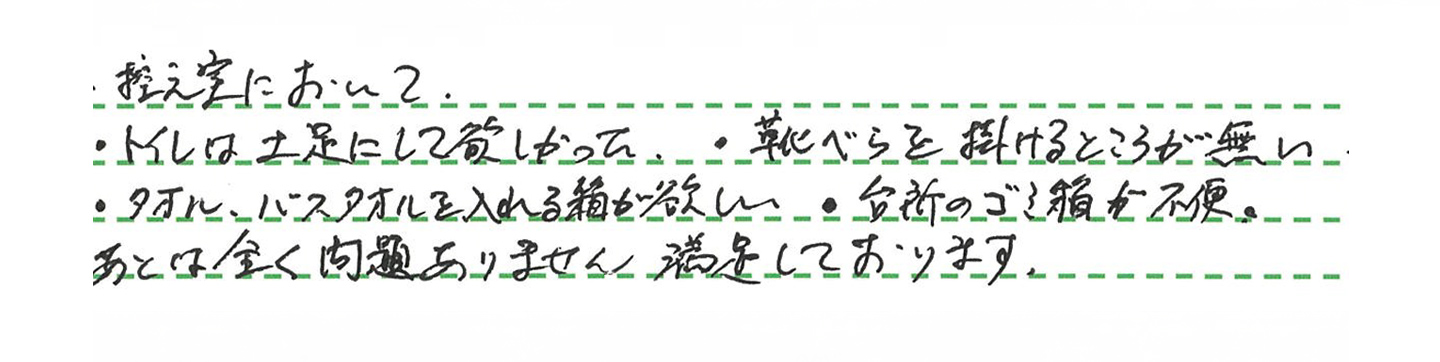 ・控え室において.
・トイレは土足にして欲しかった. ・靴べらを掛けるところが無い
・タオル、バスタオルを入れる箱が欲しい ・台所のゴミ箱が不便。
あとは全く問題ありません 満足しております.